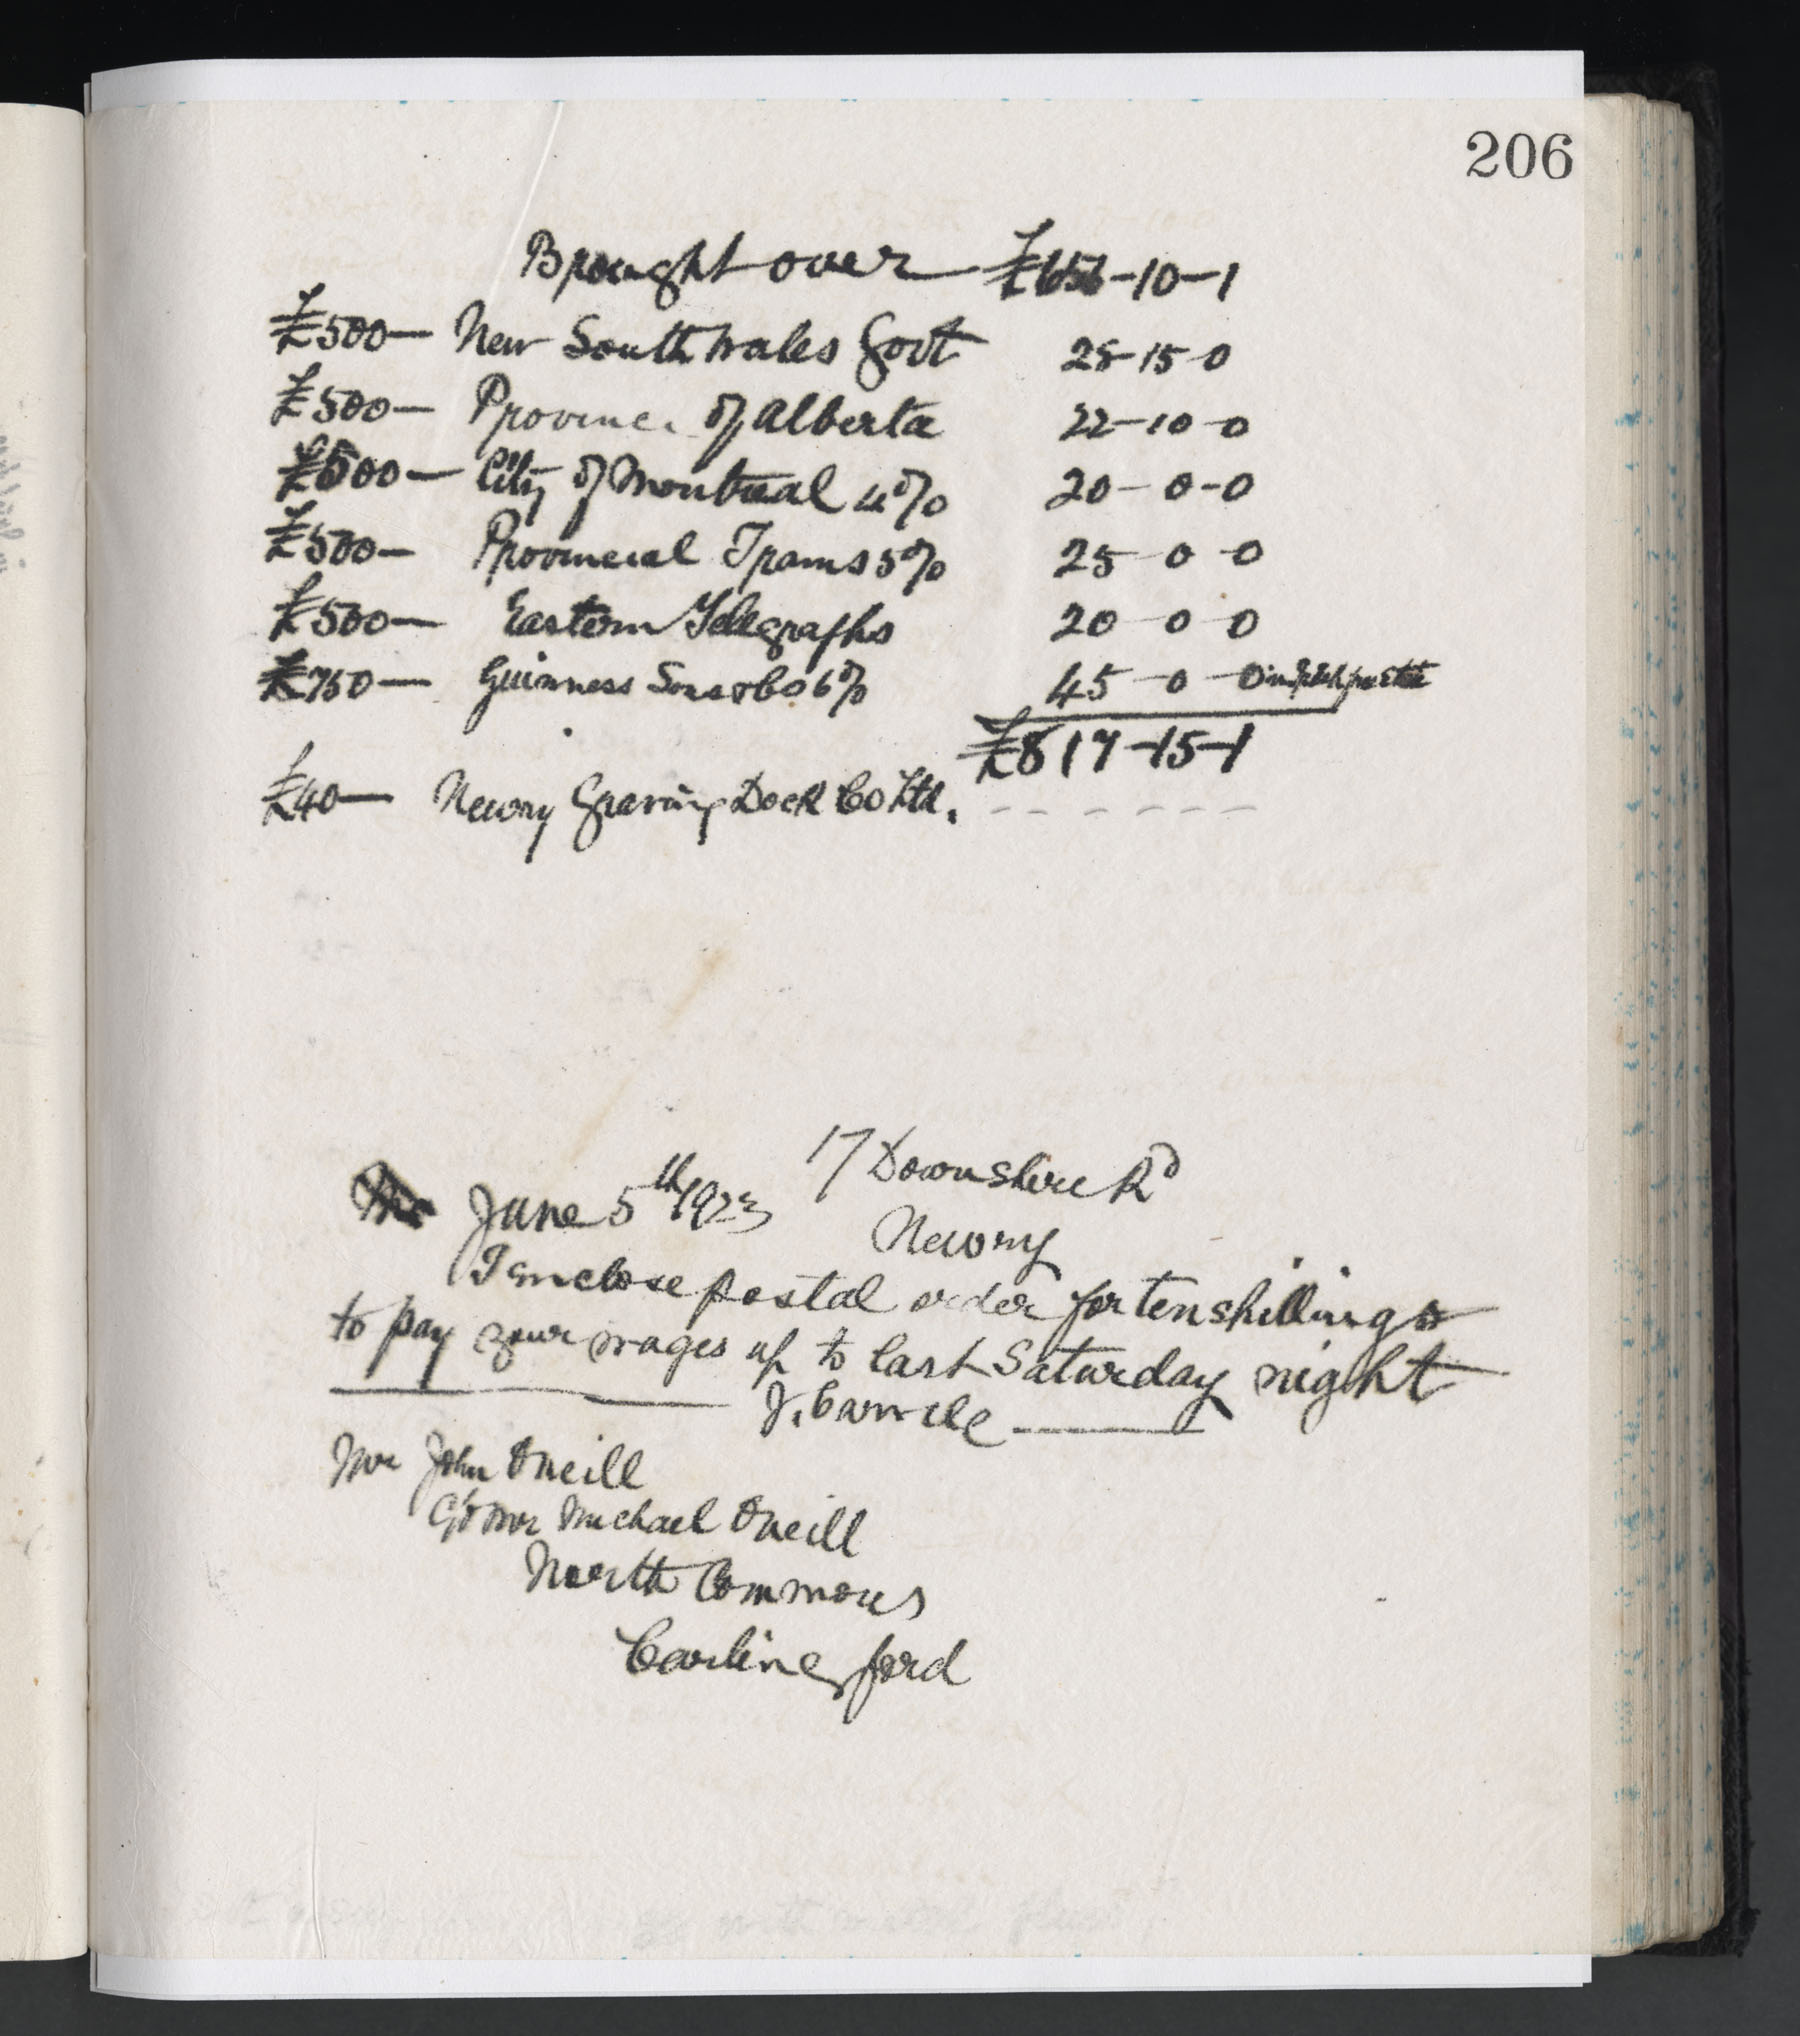 206
Brought over £656-10-1
£500- New South Wales Govt 28-15-0
£500- Province of Alberta 22-10-0
£500- City of Montreal 4% 20-0-0
£500- Provincial Trams 5% 25-0-0
£500- Eastern Telegraphs 20-0-0
£750- Guinness Sons & Co 6% 45-0-0 in Irish free state
£817-15-1
£40- Newry Graving Dock Co Ltd. - - - - - -
17 Downshire Rd
June 5th 1923
Newry
I enclose postal order for ten shillings
to pay your wages up to last Saturday night
J. Carvill
Mr John O'neill
C/o Mr Michael O'neill
North Commons
Carlingford